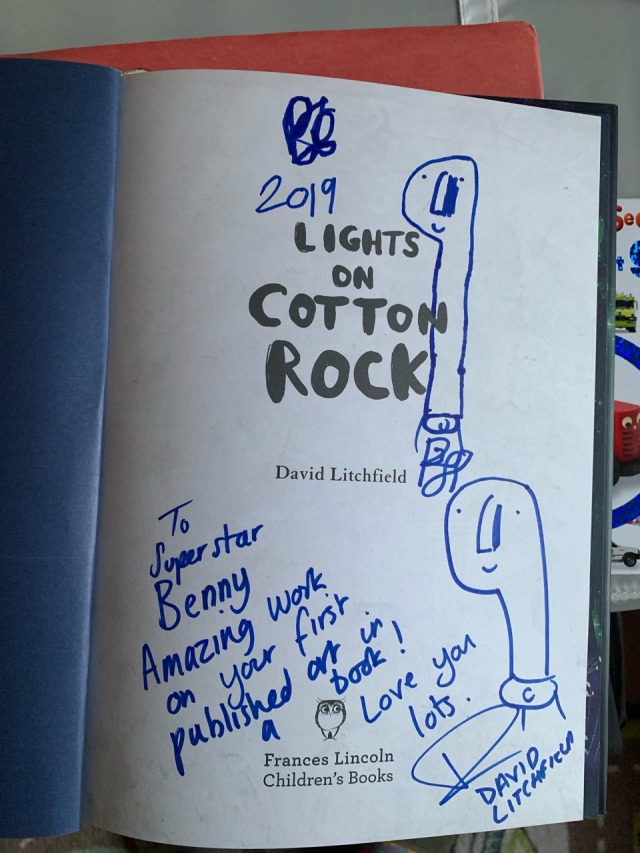 2019
LIGHTS
ON
COTTON
ROCK
David Litchfield
To
Superstar
Benny
Amazing work
on your first
published art in
a book!
Love you
lots.
C
DAVID
LITCHFIELD
Frances Lincoln
Children's Books